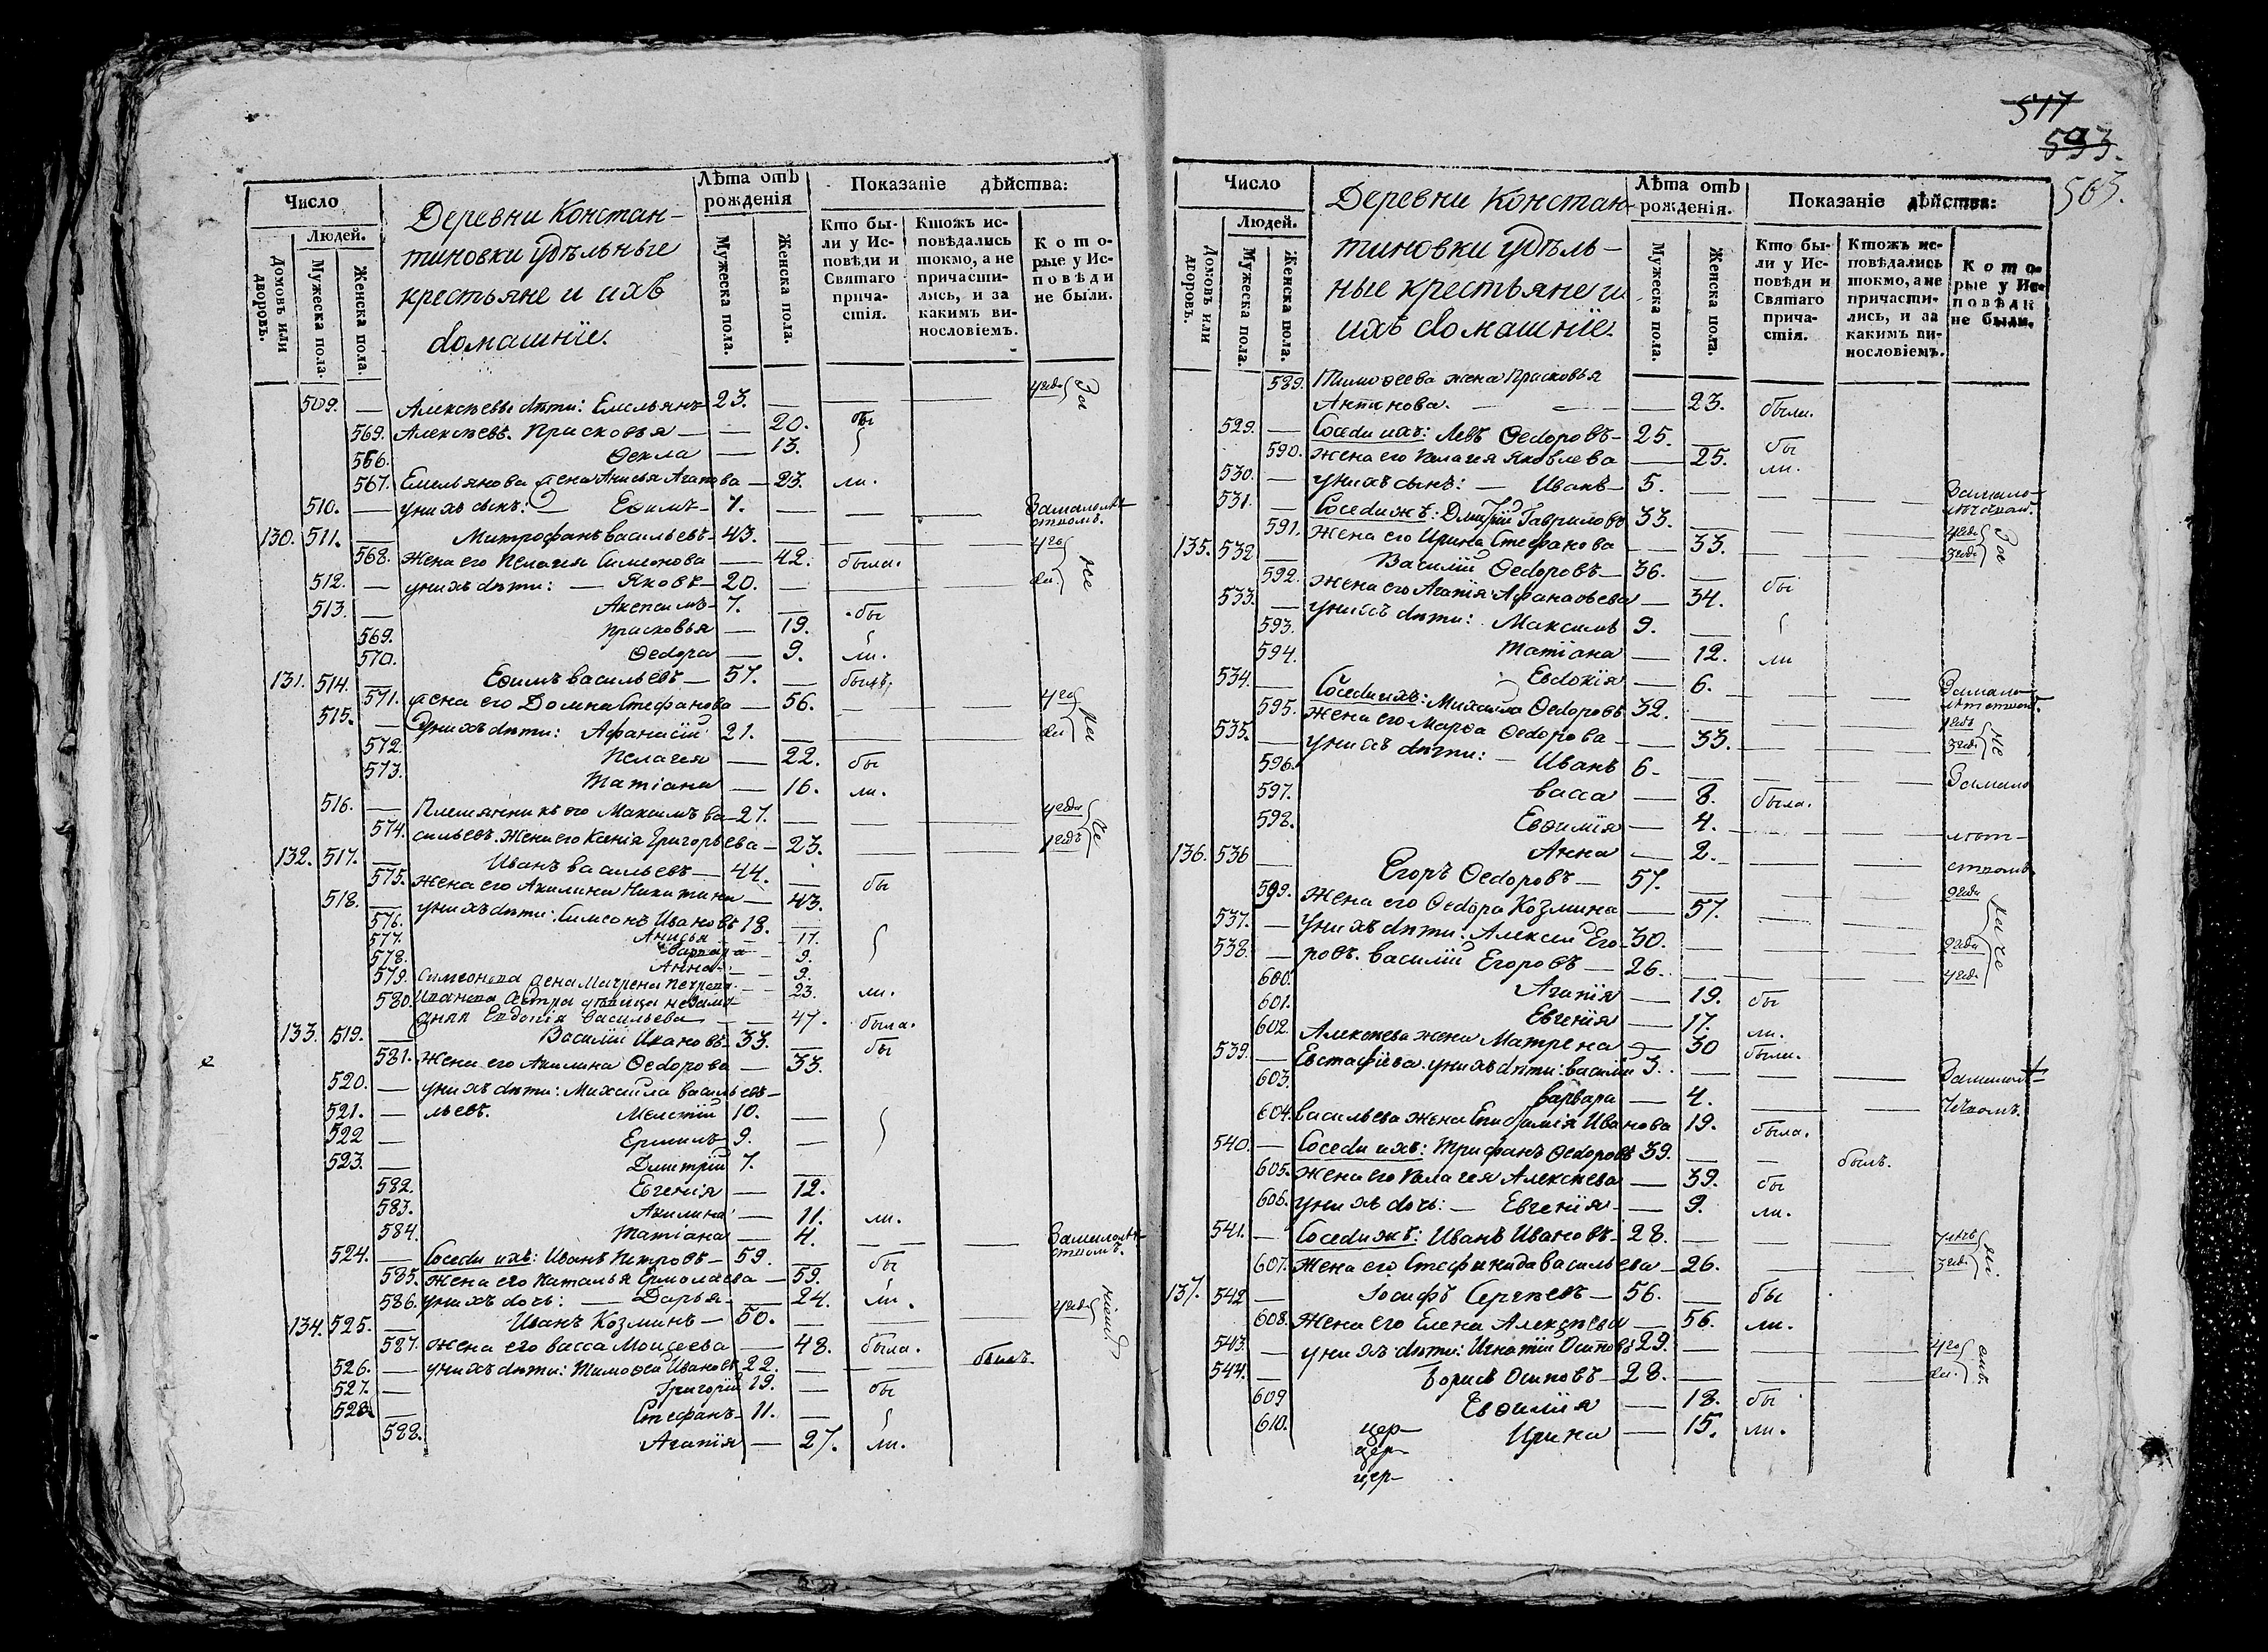 Число
Людей.
Домовъ или дворовъ.
Мужеска пола.
Женска пола.
Деревни Констан-
тиновки удѣльные
крестьяне и ихъ
домашніе.
Лѣта отъ рожденія
Мужеска пола.
Женска пола.
Показаніе дѣйства:
Кто бы-
ли у Ис-
повѣди и
Святаго
прича-
стія.
Ктожъ ис-
повѣдались
токмо, а не
причасти-
лись, и за
какимъ ви-
нословіемъ.
Кото-
рые у Ис-
повѣди
не были.
509. — Алексѣевы дѣти: Емельянъ 23. — — — 4 года За
569. Алексѣевъ. Прасковья — — 20. бы
566. Ѳекла — 13.
567. Емельянова жена Анисья Агапова — 23. ли.
510. — у нихъ сынъ: Еѳимъ 1. — — — За малолѣтствомъ.
130. 511. — Митрофанъ Васильевъ 43. — — — 4 го
568. Жена его Пелагея Симеонова — 42. была. не
512. — у нихъ дѣти: — Яковъ 20. — — да.
513. — Акепсимъ 7. — бы
569. Прасковья — 19.
570. Ѳедора — 9. ли.
131. 514. — Еѳимъ Васильевъ — 57. — былъ.
571. Жена его Домна Стефанова — 56. — — 4 го ра
515. — У нихъ дѣти: Афанасій 21. — — — да
572. Пелагея — 22. бы
573. Татіана — 16. ли.
516. — Племянникъ его Максимъ Ва- 27. — — — 4 года
574. сильевъ. Жена его Ксенія Григорьева — 23. — — 1 годъ
132. 517. — Иванъ Васильевъ — 44. —
575. Жена его Акилина Никитина — 43. бы
518. — у нихъ дѣти: Симеонъ Ивановъ 18. —
576. Анисья — 17.
577. Варвара — 9.
578. Анна — 9.
579. Симеонова жена Матрена Петрова — 23. ли.
580. Иванова сестра дѣвица незаму-
жняя Евдокія Васильева — — 47. была.
133. 519. — Василій Ивановъ 33. — бы
581. Жена его Акилина Ѳедорова — 33.
520. — у нихъ дѣти: Михаила Василь евъ —
521. — льевъ. Мелетій 10. —
522 — Ермилъ 9. —
523. — Дмитрій 7. —
582. Евгенія — 12.
583. Акилина — 11. ли.
584. Татіана — 4. — — За малолѣтствомъ.
524. — Соседи ихъ: Иванъ Петровъ — 59. бы
585. Жена его Наталья Ермолаева — 59.
586. у нихъ дочь: — Дарья — 24. ли.
134. 525. — Иванъ Козминъ — 50. — — — 4 года
587. Жена его Васса Моисеева — 48. была.
526. — у нихъ дѣти: Тимоѳей Ивановъ 22. — — былъ.
527. — Григорій 19. — бы
528. — Стефанъ 11. —
588. Агапія — 27. ли.
517
593.
563.
Число
Людей.
Домовъ или дворовъ.
Мужеска пола.
Женска пола.
Деревни Констан-
тиновки удѣль-
ные крестьяне и
ихъ домашніе.
Лѣта отъ рожденія.
Мужеска пола.
Женска пола.
Показаніе дѣйства:
Кто бы-
ли у Ис-
повѣди и
Святаго
прича-
стія.
Ктожъ ис-
повѣдались
токмо, а не
причасти-
лись, и за
какимъ ви-
нословіемъ.
Кото-
рые у Ис-
повѣди
не были.
589. Тимоѳеева жена Прасковья
Антинова. — — — 23. были.
529. — Соседи ихъ: Левъ Ѳедоровъ — 25. — бы
590. Жена его Пелагея Яковлева — 25. ли.
530. — у нихъ сынъ: — Иванъ — 5. — — — За мало-
531. — Соседи жъ: Дмитрій Гавриловъ 33. — — — 4 года
591. Жена его Ирина Стефанова — 33. — — 3 года
135. 532 — Василій Ѳедоровъ — 36. — бы
592. Жена его Агапія Афанасьева — 34.
533. — у нихъ дѣти: Максимъ 9. —
593. Татіана — 12. ли
594. Евдокія — 6. — — За мало-
534. — Соседи ихъ: Михайла Ѳедоровъ 32. — — — 1 годъ
595. Жена его Марѳа Ѳедорова — 33. — — 3 года не
535. — у нихъ дѣти: — Иванъ 6 — — — — За мало
596. Васса — 8. была.
597. Евѳимія — 4. — — лѣт-
598. Анна — 2. — — ствомъ.
136. 536 — Егоръ Ѳедоровъ — 57. — — — 9 года
599. Жена его Ѳедора Козмина — 57. — —
537. — У нихъ дѣти: Алексѣй Его- 30. — — — 9 года
538. — ровъ. Василій Егоровъ — 26. — — — 4 года
600. Агапія — 19. бы
601. Евгенія — 17. ли.
602. Алексѣева жена Матрена — 30 были.
539. — Евстафіева. у нихъ дѣти: Василій 3. — — — За малолѣ-
603. Варвара — 4. — —
604. Васильева жена Евфимія Иванова 19. была.
540. — Соседи ихъ: Трифанъ Ѳедоровъ 39. — — былъ.
605. Жена его Палагея Алексѣева — 39. бы
606. у нихъ дочь: — Евгенія — 9. ли.
541. — Соседи жъ: Иванъ Ивановъ — 28. — — —
607. Жена его Стефанида Васильева — 26. — — 3 года
137. 542 — Іосифъ Сергѣевъ — 56. — бы
608. Жена его Елена Алексѣева — 56. ли.
543. — у нихъ дѣти: Игнатій Осиповъ 29. — — — 4 го
544. — Борисъ Осиповъ — 28. — — — да.
609 Евѳимія — 18. бы
610. Ирина — 15. ли.
цер-
цер-
цер-